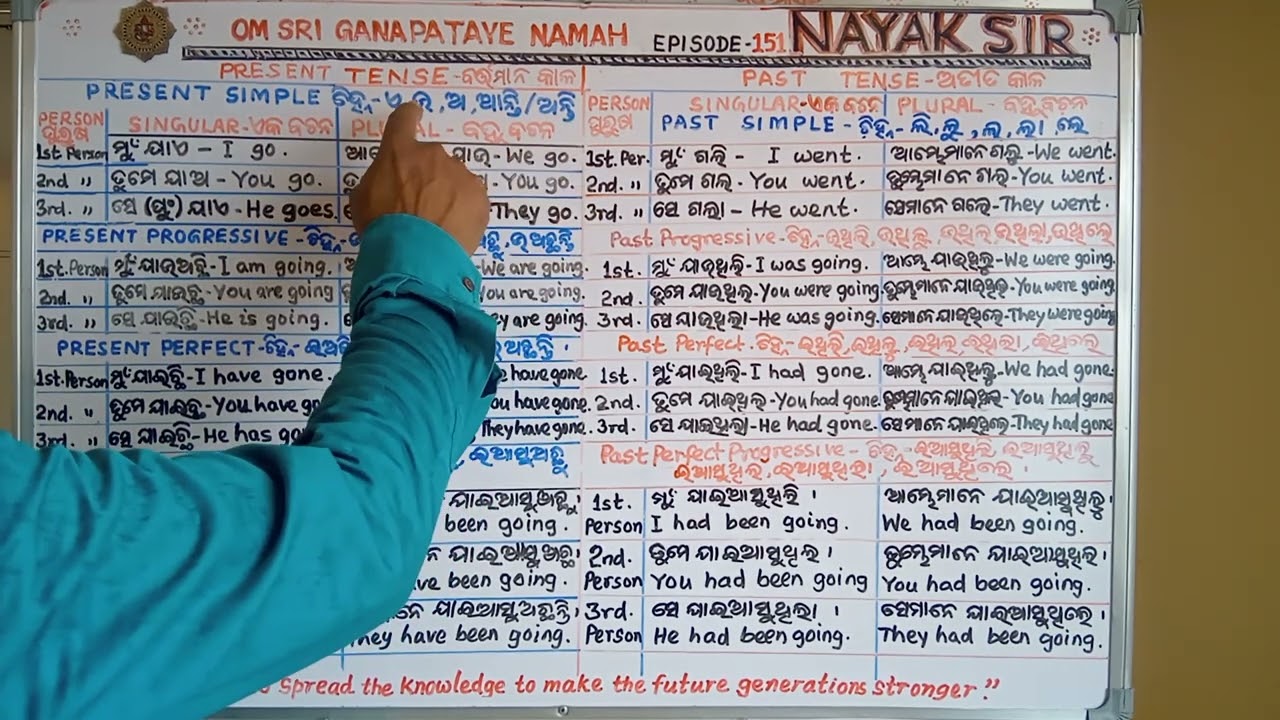 OM SRI GANAPATAYE NAMAH EPISODE-151 NAYAK SIR
PRESENT TENSE-ବର୍ତ୍ତମାନ କାଳ
PAST TENSE-ଅତୀତ କାଳ
PRESENT SIMPLE ଚିହ୍ନ-ଏ, ଉ, ଅ, ଆନ୍ତି/ଅନ୍ତି
PERSON ପୁରୁଷ SINGULAR-ଏକ ବଚନ PLURAL-ବହୁ ବଚନ
PERSON ପୁରୁଷ SINGULAR-ଏକ ବଚନ PLURAL-ବହୁ ବଚନ
PAST SIMPLE-ଚିହ୍ନ-ଲି, ଲୁ, ଲ, ଲା ଲେ
1st Person ମୁଁ ଯାଏ - I go. ଯାଉ-We go.
2nd " ତୁମେ ଯାଅ - You go. - You go.
3rd. " ସେ (ସୁଂ) ଯାଏ - He goes. They go.
1st. Per. ମୁଁ ଗଲି - I went. ଆମ୍ଭେମାନେ ଗଲୁ-We went.
2nd. " ତୁମେ ଗଲ - You went. ତୁମ୍ଭେମାନେ ଗଲ-You went.
3rd. " ସେ ଗଲା - He went. ସେମାନେ ଗଲେ-They went.
PRESENT PROGRESSIVE-ଚିହ୍ନ- ଉଅଛନ୍ତି
1st. Person ମୁଁ ଯାଉଅଛି-I am going. We are going.
2nd. " ତୁମେ ଯାଉଛ-You are going You are going.
3rd. " ସେ ଯାଉଛି-He is going. are going.
Past Progressive-ଚିହ୍ନ-ଉଥିଲି, ଉଥିଲୁ, ଉଥିଲ, ଉଥିଲା, ଉଥିଲେ
1st. ମୁଁ ଯାଉଥିଲି-I was going. ଆମ୍ଭେ ଯାଉଥିଲୁ-We were going.
2nd. ତୁମେ ଯାଉଥିଲ-You were going. ତୁମ୍ଭେମାନେ ଯାଉଥିଲ-You were going.
3rd. ସେ ଯାଉଥିଲା-He was going. ସେମାନେ ଯାଉଥିଲେ-They were going
PRESENT PERFECT-ଚିହ୍ନ- ଇଅଛନ୍ତି .
1st. Person ମୁଁ ଯାଇଛି-I have gone. have gone.
2nd. " ତୁମେ ଯାଇଛ-You have have gone.
3rd. " ସେ ଯାଇଛି-He has They have gone.
Past Perfect-ଚିହ୍ନ-ଇଥିଲି, ଇଥିଲୁ, ଇଥିଲ, ଇଥିଲା, ଇଥିଲେ
1st. ମୁଁ ଯାଇଥିଲି-I had gone. ଆମ୍ଭେ ଯାଇଥିଲୁ-We had gone.
2nd. ତୁମେ ଯାଇଥିଲ-You had gone. ତୁମ୍ଭେମାନେ ଯାଇଥିଲ-You had gone
3rd. ସେ ଯାଇଥିଲା-He had gone. ସେମାନେ ଯାଇଥିଲେ-They had gone
ଇଆସୁଅଛୁ
ଯାଇଆସୁଅଛୁ।
been going.
ଯାଇଆସୁଅଛ।
been going.
ଯାଇଆସୁଅଛନ୍ତି।
They have been going.
Past Perfect Progressive-ଚିହ୍ନ-ଇଆସୁଥିଲି, ଇଆସୁଥିଲୁ
ଇଆସୁଥିଲ, ଇଆସୁଥିଲା, ଇଆସୁଥିଲେ।
1st. ମୁଁ ଯାଇଆସୁଥିଲି। ଆମ୍ଭେମାନେ ଯାଇଆସୁଥିଲୁ।
Person I had been going. We had been going.
2nd. ତୁମେ ଯାଇଆସୁଥିଲ। ତୁମ୍ଭେମାନେ ଯାଇଆସୁଥିଲ।
Person You had been going You had been going.
3rd. ସେ ଯାଇଆସୁଥିଲା। ସେମାନେ ଯାଇଆସୁଥିଲେ।
Person He had been going. They had been going.
Spread the Knowledge to make the future generations stronger."